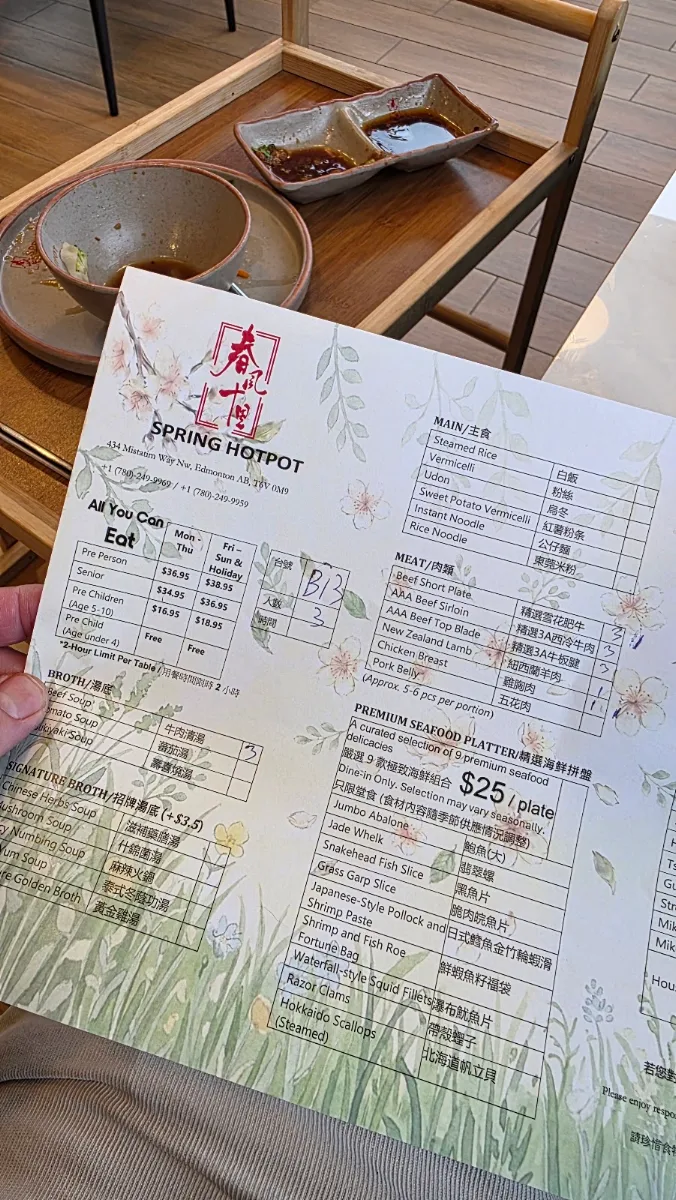 春風十里
SPRING HOTPOT
434 Mistatim Way Nw, Edmonton AB, T6V 0M9
+1 (780)-249-9969 / +1 (780)-249-9959
All You Can Eat
Mon - Thu
Fri – Sun & Holiday
Pre Person $36.95 $38.95
Senior $34.95 $36.95
Pre Children (Age 5-10) $16.95 $18.95
Pre Child (Age under 4) Free Free
*2-Hour Limit Per Table /用餐時間限時 2 小時
台號 B13
人數 3
時間
BROTH/湯底
Beef Soup 牛肉清湯
Soup 蕃茄湯 3
Soup 壽喜燒湯
SIGNATURE BROTH/招牌湯底 (+$3.5)
Chinese Herbs Soup 滋補藥膳湯
Soup 什錦菌湯
Numbing Soup 麻辣火鍋
Soup 泰式冬蔭功湯
Golden Broth 黃金雞湯
MAIN/主食
Steamed Rice 白飯
Vermicelli 粉絲
Udon 烏冬
Sweet Potato Vermicelli 紅薯粉条
Instant Noodle 公仔麵
Rice Noodle 東莞米粉
MEAT/肉類
Beef Short Plate 精選雪花肥牛 3
AAA Beef Sirloin 精選3A西冷牛肉 3
AAA Beef Top Blade 精選3A牛板腱 3
New Zealand Lamb 紐西蘭羊肉
Chicken Breast 雞胸肉 1
Pork Belly 五花肉 1
(Approx. 5-6 pcs per portion)
PREMIUM SEAFOOD PLATTER/精選海鮮拼盤
A curated selection of 9 premium seafood delicacies
嚴選 9 款極致海鮮組合
$25 / plate
Dine-in Only. Selection may vary seasonally.
只限堂食 (食材內容隨季節供應情況調整)
Jumbo Abalone 鮑魚(大)
Jade Whelk 翡翠螺
Snakehead Fish Slice 黑魚片
Grass Garp Slice 脆肉皖魚片
Japanese-Style Pollock and Shrimp Paste 日式鱈魚金竹輪蝦滑
Shrimp and Fish Roe Fortune Bag 鮮蝦魚籽福袋
Waterfall-style Squid Fillets 瀑布魷魚片
Razor Clams 帶殼蟶子
Hokkaido Scallops (Steamed) 北海道帆立貝
若您對
Please enjoy
請珍惜食